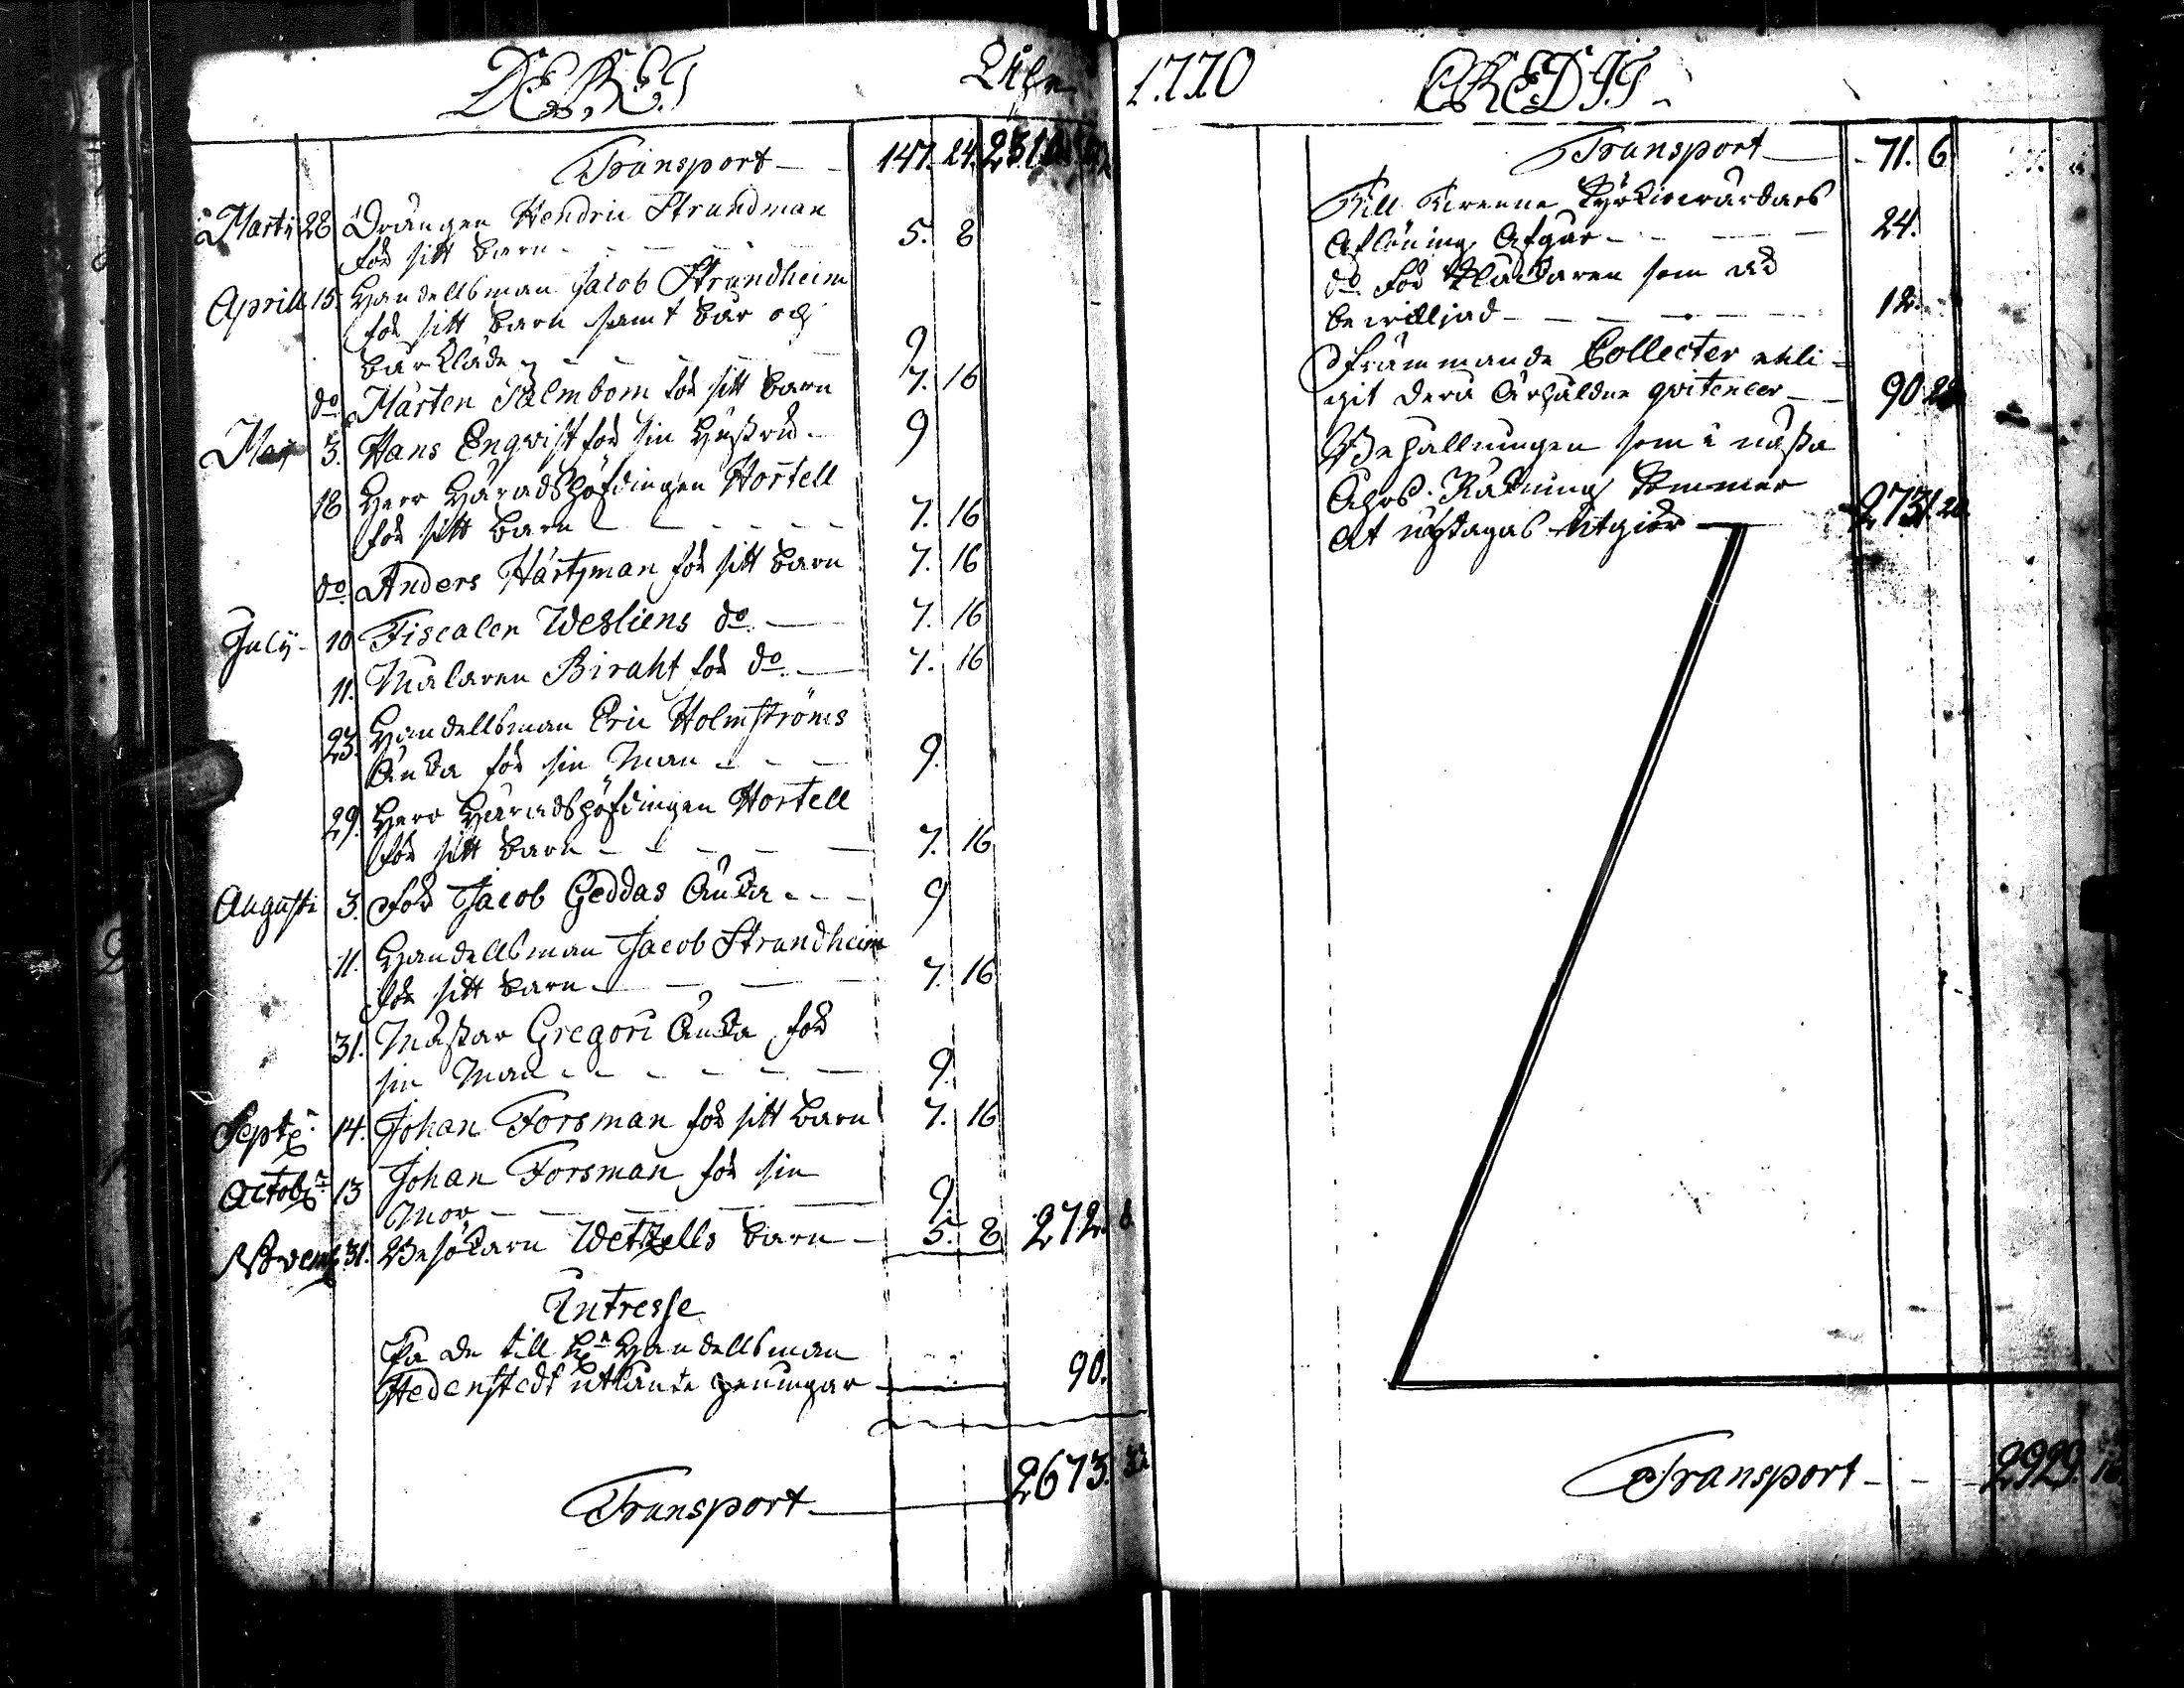 DEBET
1770
CREDIT
Transport 147. 24. 2310
Marti 28 Drängen Hendric Strandman
för sitt barn 5. 8
Aprill 15. Handellsman Jacob Strandheim
för sitt barn samt bår och
bårkläde 9
do Mårten Palmbom för sitt barn 7. 16
Maij 3. Hans Engvist för sin hustru 9
18 Herr Häradshöfdingen Hortell
för sitt barn 7. 16
do Anders Hartzman för sitt barn 7. 16
July 10 Fiscalen Wesliens do 7. 16
11. Målaren Biraht för do 7. 16
23. Handellsman Eric Holmströms
Änka för sin Man 9.
29. Herr Häradshöfdingen Hortell
för sitt barn 7. 16
Augusti 3. för Jacob Geddas Änka 9
11. Handellsman Jacob Strandheim
för sitt barn 7. 16
31. Mästar Gregori Änka för
sin Man 9.
Septr 14. Johan Forsman för sitt barn 7. 16
Octobr 13 Johan Forsman för sin
Mor 9.
Novemb 31. Besökarn Wetzells barn 5. 8 272. 8
Intresse
På de till Hr Handellsman
Hedenstedt utlånte penningar 90.
Transport 2673. 32
Transport 71. 6
Till Kyrkiowärdars
Aflöning Afgår 24.
do för Klåckaren som är
bewilljad 12.
främmande Collecter enli-
git dera Ärhåldne qvitencer 90
Behållningen som i nästa
Åhrs Räkning kommer
at uptagas utgiör
Transport 2929. 16